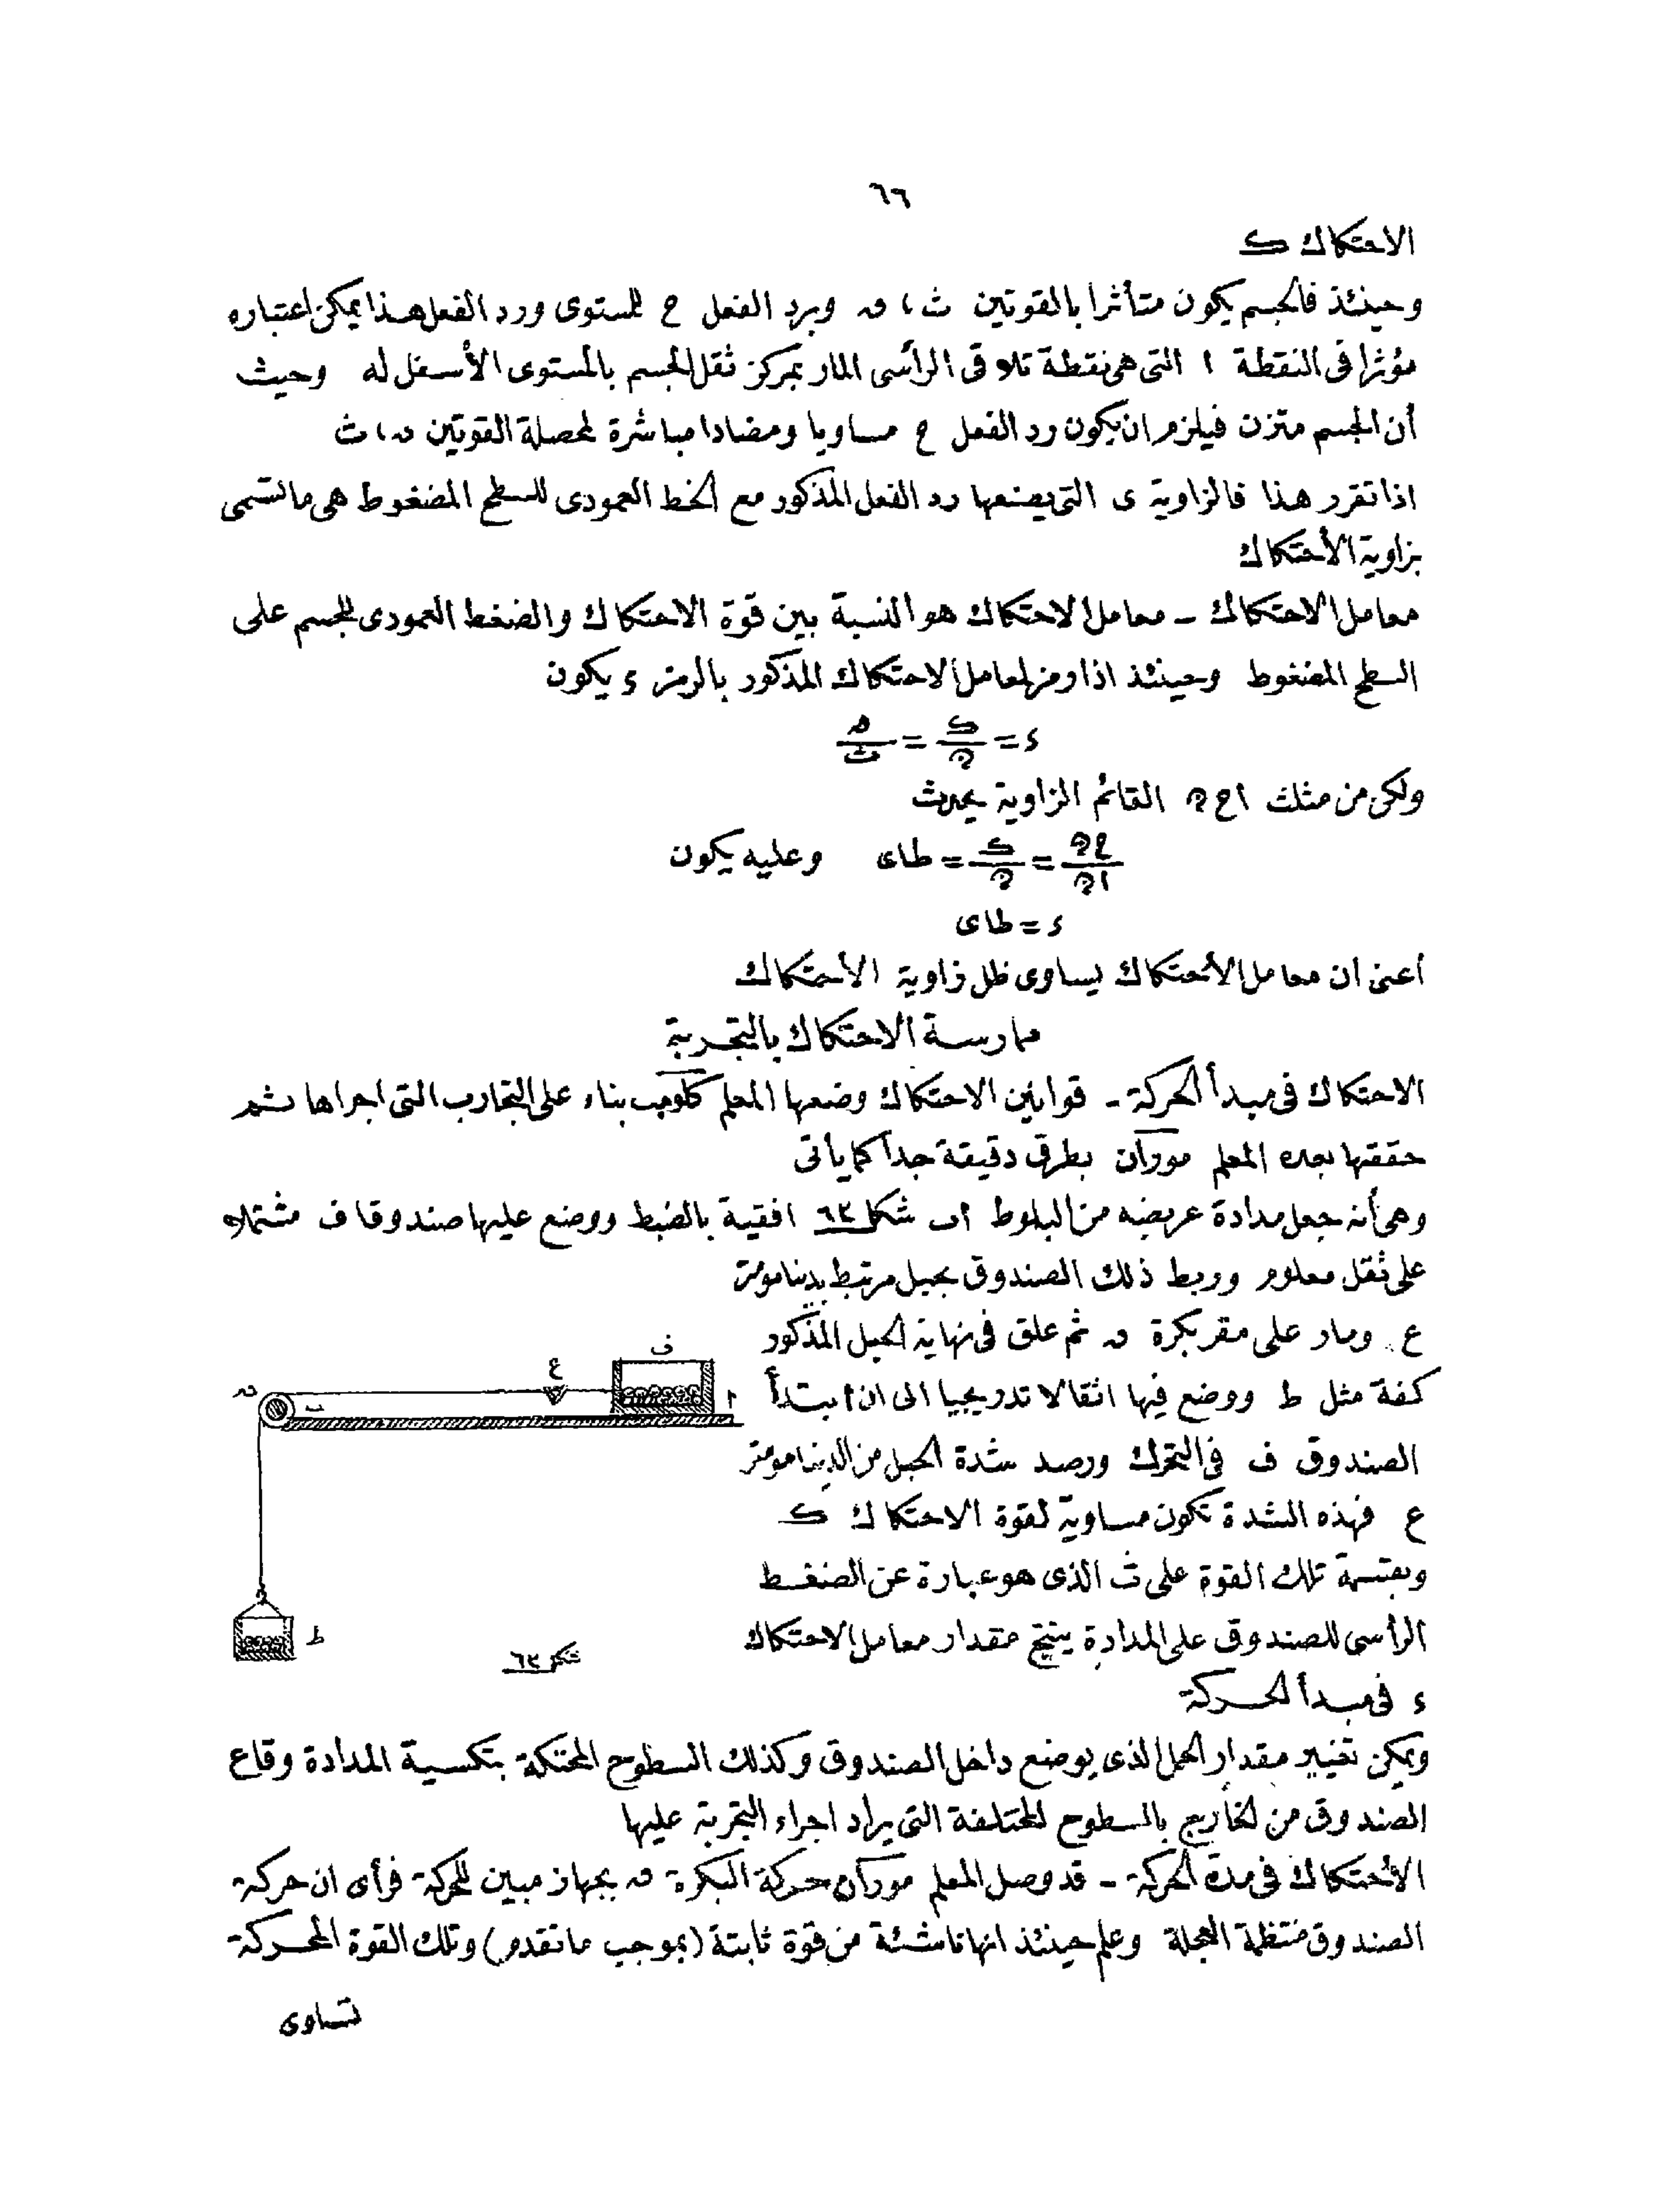 ٦٦
الاحتكاك ك
وحينئذ فالجسم يكون متأثرا بالقوتين ث ، ں وبرد الفعل ح للستوى ورد الفعل هذا يمكن اعتباره
مؤثرا فى النقطة ا التى هى نقطة تلاقى الرأسى المار بمركز ثقل الجسم بالمستوى الأسفل له وحيث
أن الجسم متزن فيلزم ان يكون رد الفعل ح مساويا ومضادا مباشرة لمحصلة القوتين ں ، ث
اذا تقرر هذا فالزاوية ى التى يصنعها رد الفعل المذكور مع الخط العمودى للسطح المضغوط هى ما تسمى
بزاوية الأحتكاك
معامل الاحتكاك - معامل الاحتكاك هو النسبة بين قوة الاحتكاك والضغط العمودى للجسم على
السطح المضغوط وحينئذ اذا رمز لمعامل الاحتكاك المذكور بالرمز ء يكون
ء = ك/م = ں/ث
ولكن من مثلث ا ح م القائم الزاوية يحدث
ح م/ا م = ك/م = طا ى وعليه يكون
ء = طا ى
أعنى ان معامل الأحتكاك يساوى ظل زاوية الأحتكاك
ممارسة الاحتكاك بالتجربة
الاحتكاك فى مبدأ الحركة - قوانين الاحتكاك وضعها المعلم كلومب بناء على التجارب التى اجراها ثم
حققها بعده المعلم موران بطرق دقيقة جدا كما يأتى
وهى أنه جعل مدادة عريضه من البلوط اب شكل ٦٣ افقية بالضبط ووضع عليها صندوقا ف مشتملا
على ثقل معلوم وربط ذلك الصندوق بحبل مرتبط بدينامومتر
ع ومار على مقر بكرة ں ثم علق فى نهاية الحبل المذكور
كفة مثل ط ووضع فيها اثقالا تدريجيا الى ان ابتدأ
الصندوق ف فى التحرك ورصد شدة الحبل من الدينامومتر
ع فهذه الشدة تكون مساوية لقوة الاحتكاك ك
وبقسمة تلك القوة على ث الذى هو عبارة عن الضغط
الرأسى للصندوق على المدادة ينتج مقدار معامل الاحتكاك
ء فى مبدأ الحركة
ف
ع
ں
ب
ا
ط
شكل ٦٣
ويمكن تغيير مقدار الحمل الذى يوضع داخل الصندوق وكذلك السطوح المحتكة بتكسية المدادة وقاع
الصندوق من الخارج بالسطوح المختلفة التى يراد اجراء التجربة عليها
الأحتكاك فى مدة الحركة - قد وصل المعلم موران حركة البكرة ں بجهاز مبين للحركة فرأى ان حركة
الصندوق منتظمة العجلة وعلم حينئذ انها ناشئة من قوة ثابتة (بموجب ما تقدم) وتلك القوة المحركة
تساوى